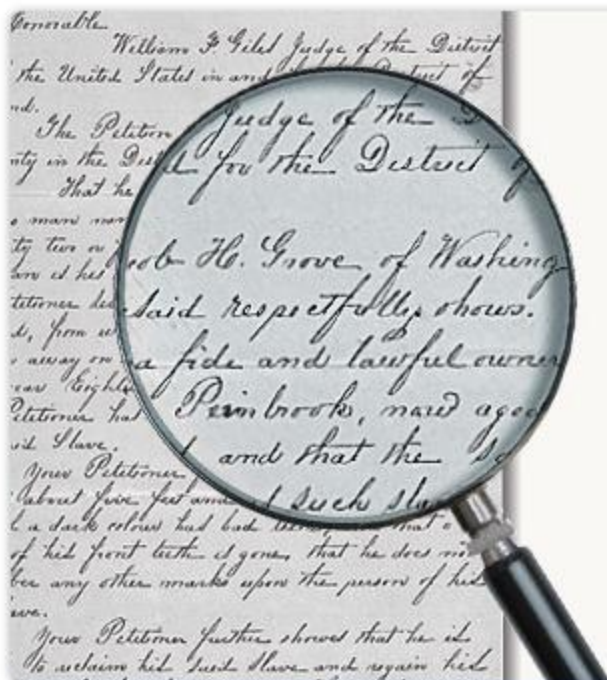 Honorable
William F Giles Judge of the District
the United States in and District of
nd.
The Petition
nty in the Dis
That he
o man nam
ty two or
an is his
titioner des
d, from
away on
ear Eight
Petitioner has
id Slave.
Your Petitioner
about five feet and
a dark colour has bad that o
of his front teeth is gone, that he does no
ber any other marks upon the person of his
ave.
Your Petitioner further shows that he is
to reclaim his said Slave and regain his
Judge of the D
d for the District of
acob H. Grove of Washing
said respectfully shows.
a fide and lawful owner
Peinbrook, now aged
and that the so
such sla